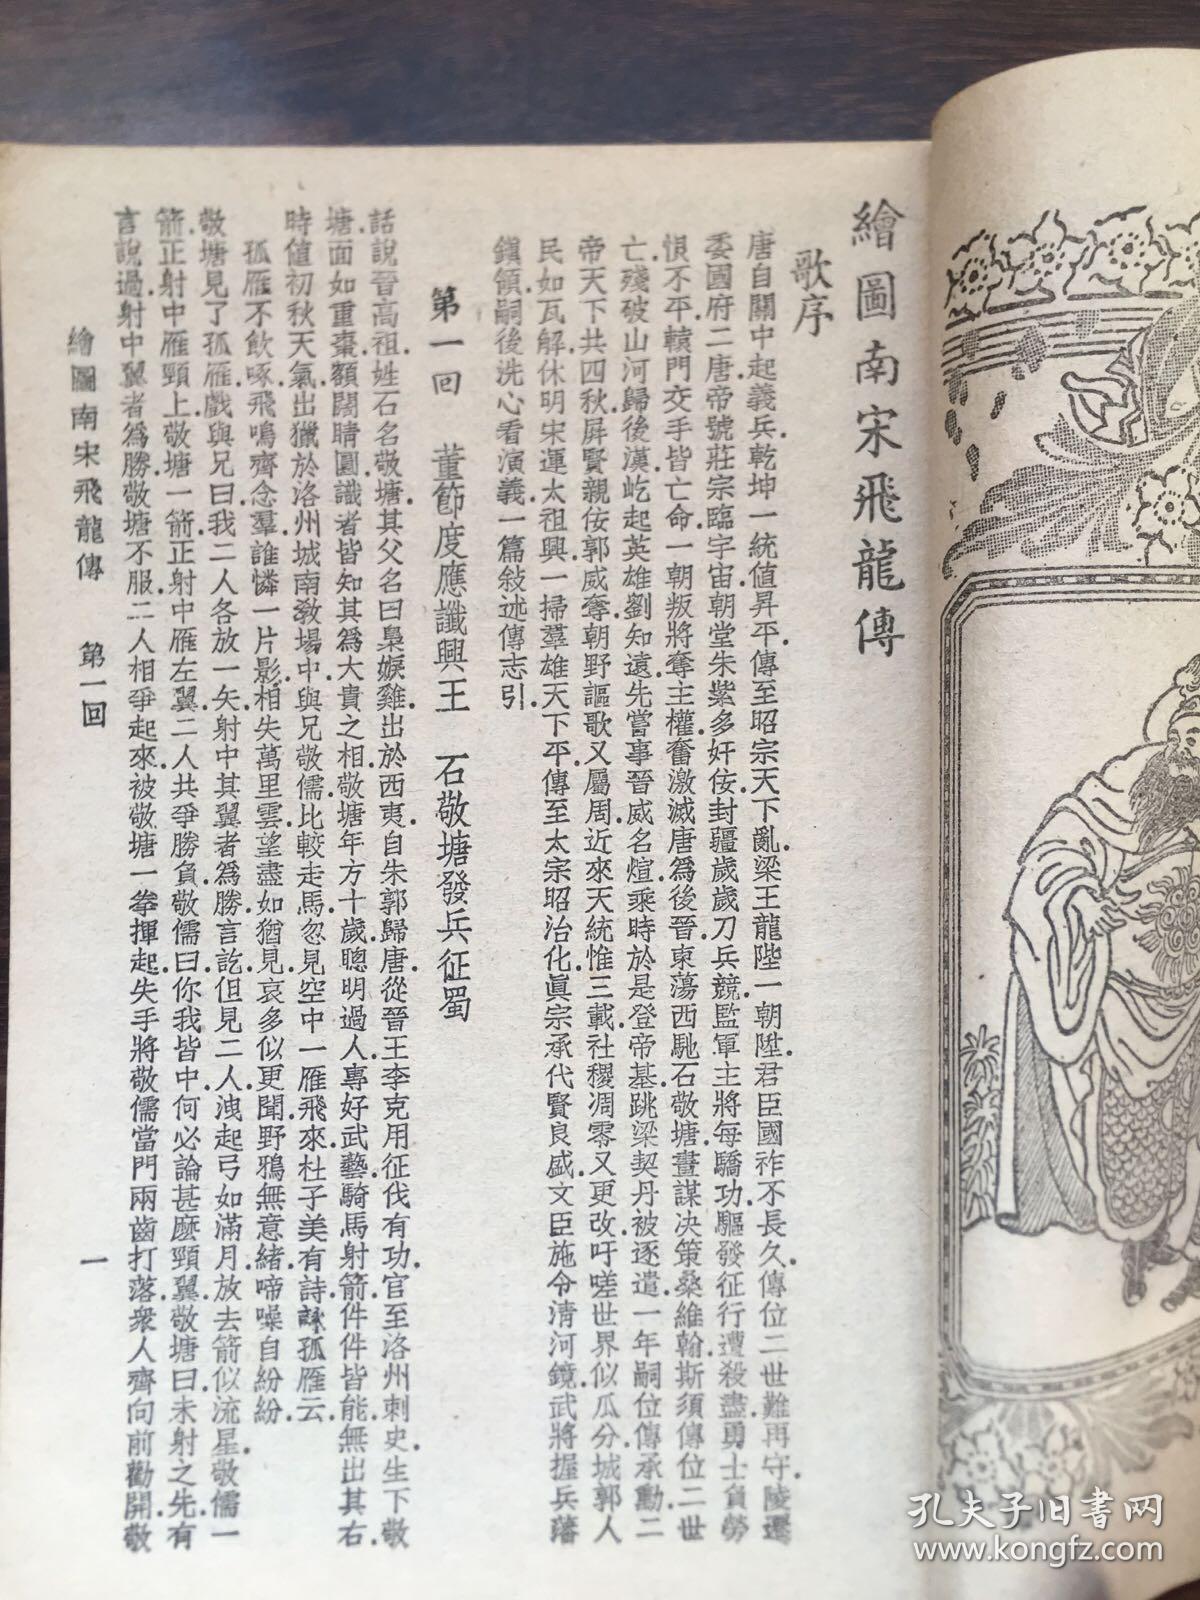 繪圖南宋飛龍傳
歌序
唐自關中起義兵.乾坤一統値昇平.傳至昭宗天下亂.梁王龍陛一朝陞.君臣國祚不長久.傳位二世難再守.陵遷
委國府二唐.帝號莊宗臨宇宙.朝堂朱紫多奸佞.封疆歲歲刀兵競.監軍主將每驕功.驅發征行遭殺盡.勇士負勞
恨不平.轅門交手皆亡命.一朝叛將奪主權.奮激滅唐爲後晉.東蕩西馳石敬塘.畫謀決策桑維翰.斯須傳位二世
亡.殘破山河歸後漢.屹起英雄劉知遠.先嘗事晉威名煊.乘時於是登帝基.跳梁契丹被逐遣.一年嗣位傳承勳.二
帝天下共四秋.屏賢親佞郭威奪.朝野謳歌又屬周.近來天統惟三載.社稷凋零又更改.吁嗟世界似瓜分.城郭人
民如瓦解.休明宋運太祖興.一掃羣雄天下平.傳至太宗昭治化.眞宗承代賢良盛.文臣施令清河鏡.武將握兵藩
鎭領.嗣後洗心看演義.一篇敍述傳志引.
第一回 董節度應讖興王 石敬塘發兵征蜀
話說晉高祖.姓石名敬塘.其父名曰臬捩雞.出於西夷.自朱郭歸唐.從晉王李克用征伐有功.官至洛州刺史.生下敬
塘.面如重棗.額闊睛圓.識者皆知其爲大貴之相.敬塘年方十歲.聰明過人.專好武藝.騎馬射箭件件皆能.無出其右.
時値初秋天氣.出獵於洛州城南教場中.與兄敬儒比較走馬.忽見空中一雁飛來.杜子美有詩詠孤雁云.
孤雁不飲啄.飛鳴齊念羣.誰憐一片影.相失萬里雲.望盡如猶見.哀多似更聞.野鴉無意緖.啼噪自紛紛.
敬塘見了孤雁.戲與兄曰.我二人各放一矢.射中其翼者爲勝.言訖.但見二人洩起弓如滿月.放去箭似流星.敬儒一
箭.正射中雁頸上.敬塘一箭.正射中雁左翼.二人共爭勝負.敬儒曰.你我皆中.何必論甚麼頸翼.敬塘曰.未射之先.有
言說過.射中翼者爲勝.敬塘不服.二人相爭起來.被敬塘一拳揮起.失手將敬儒當門兩齒打落.衆人齊向前勸開.敬
繪圖南宋飛龍傳 第一回 一
孔夫子旧书网
www.kongfz.com